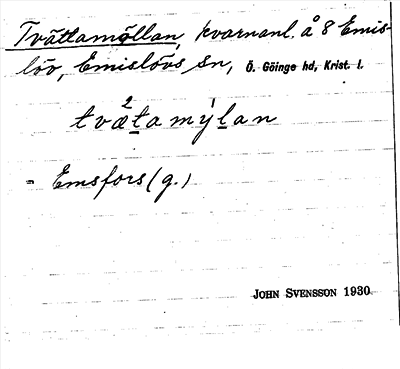 Tvättamöllan, kvarnanl. å 8 Emis-
löv, Emislövs sn, Ö. Göinge hd, Krist. l.
tvæ̀ta mýlan
= Emsfors (g.)
JOHN SVENSSON 1930.